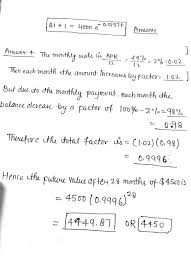 21 + 1 = 4000 e^-0.0157t Answer
Answer 4 The monthly rate is APR/12 = 24%/12 = 2% = 0.02
Then each month the amount increases by factor 1.02
But due to the monthly payment each month the
balance decrease by a factor of 100% - 2% = 98%
= 0.98
Therefore the total factor is = (1.02)(0.98)
= 0.9996
Hence the future value after 28 months of $4500 is
= 4500 (0.9996)^28
= $4449.87 OR $4450